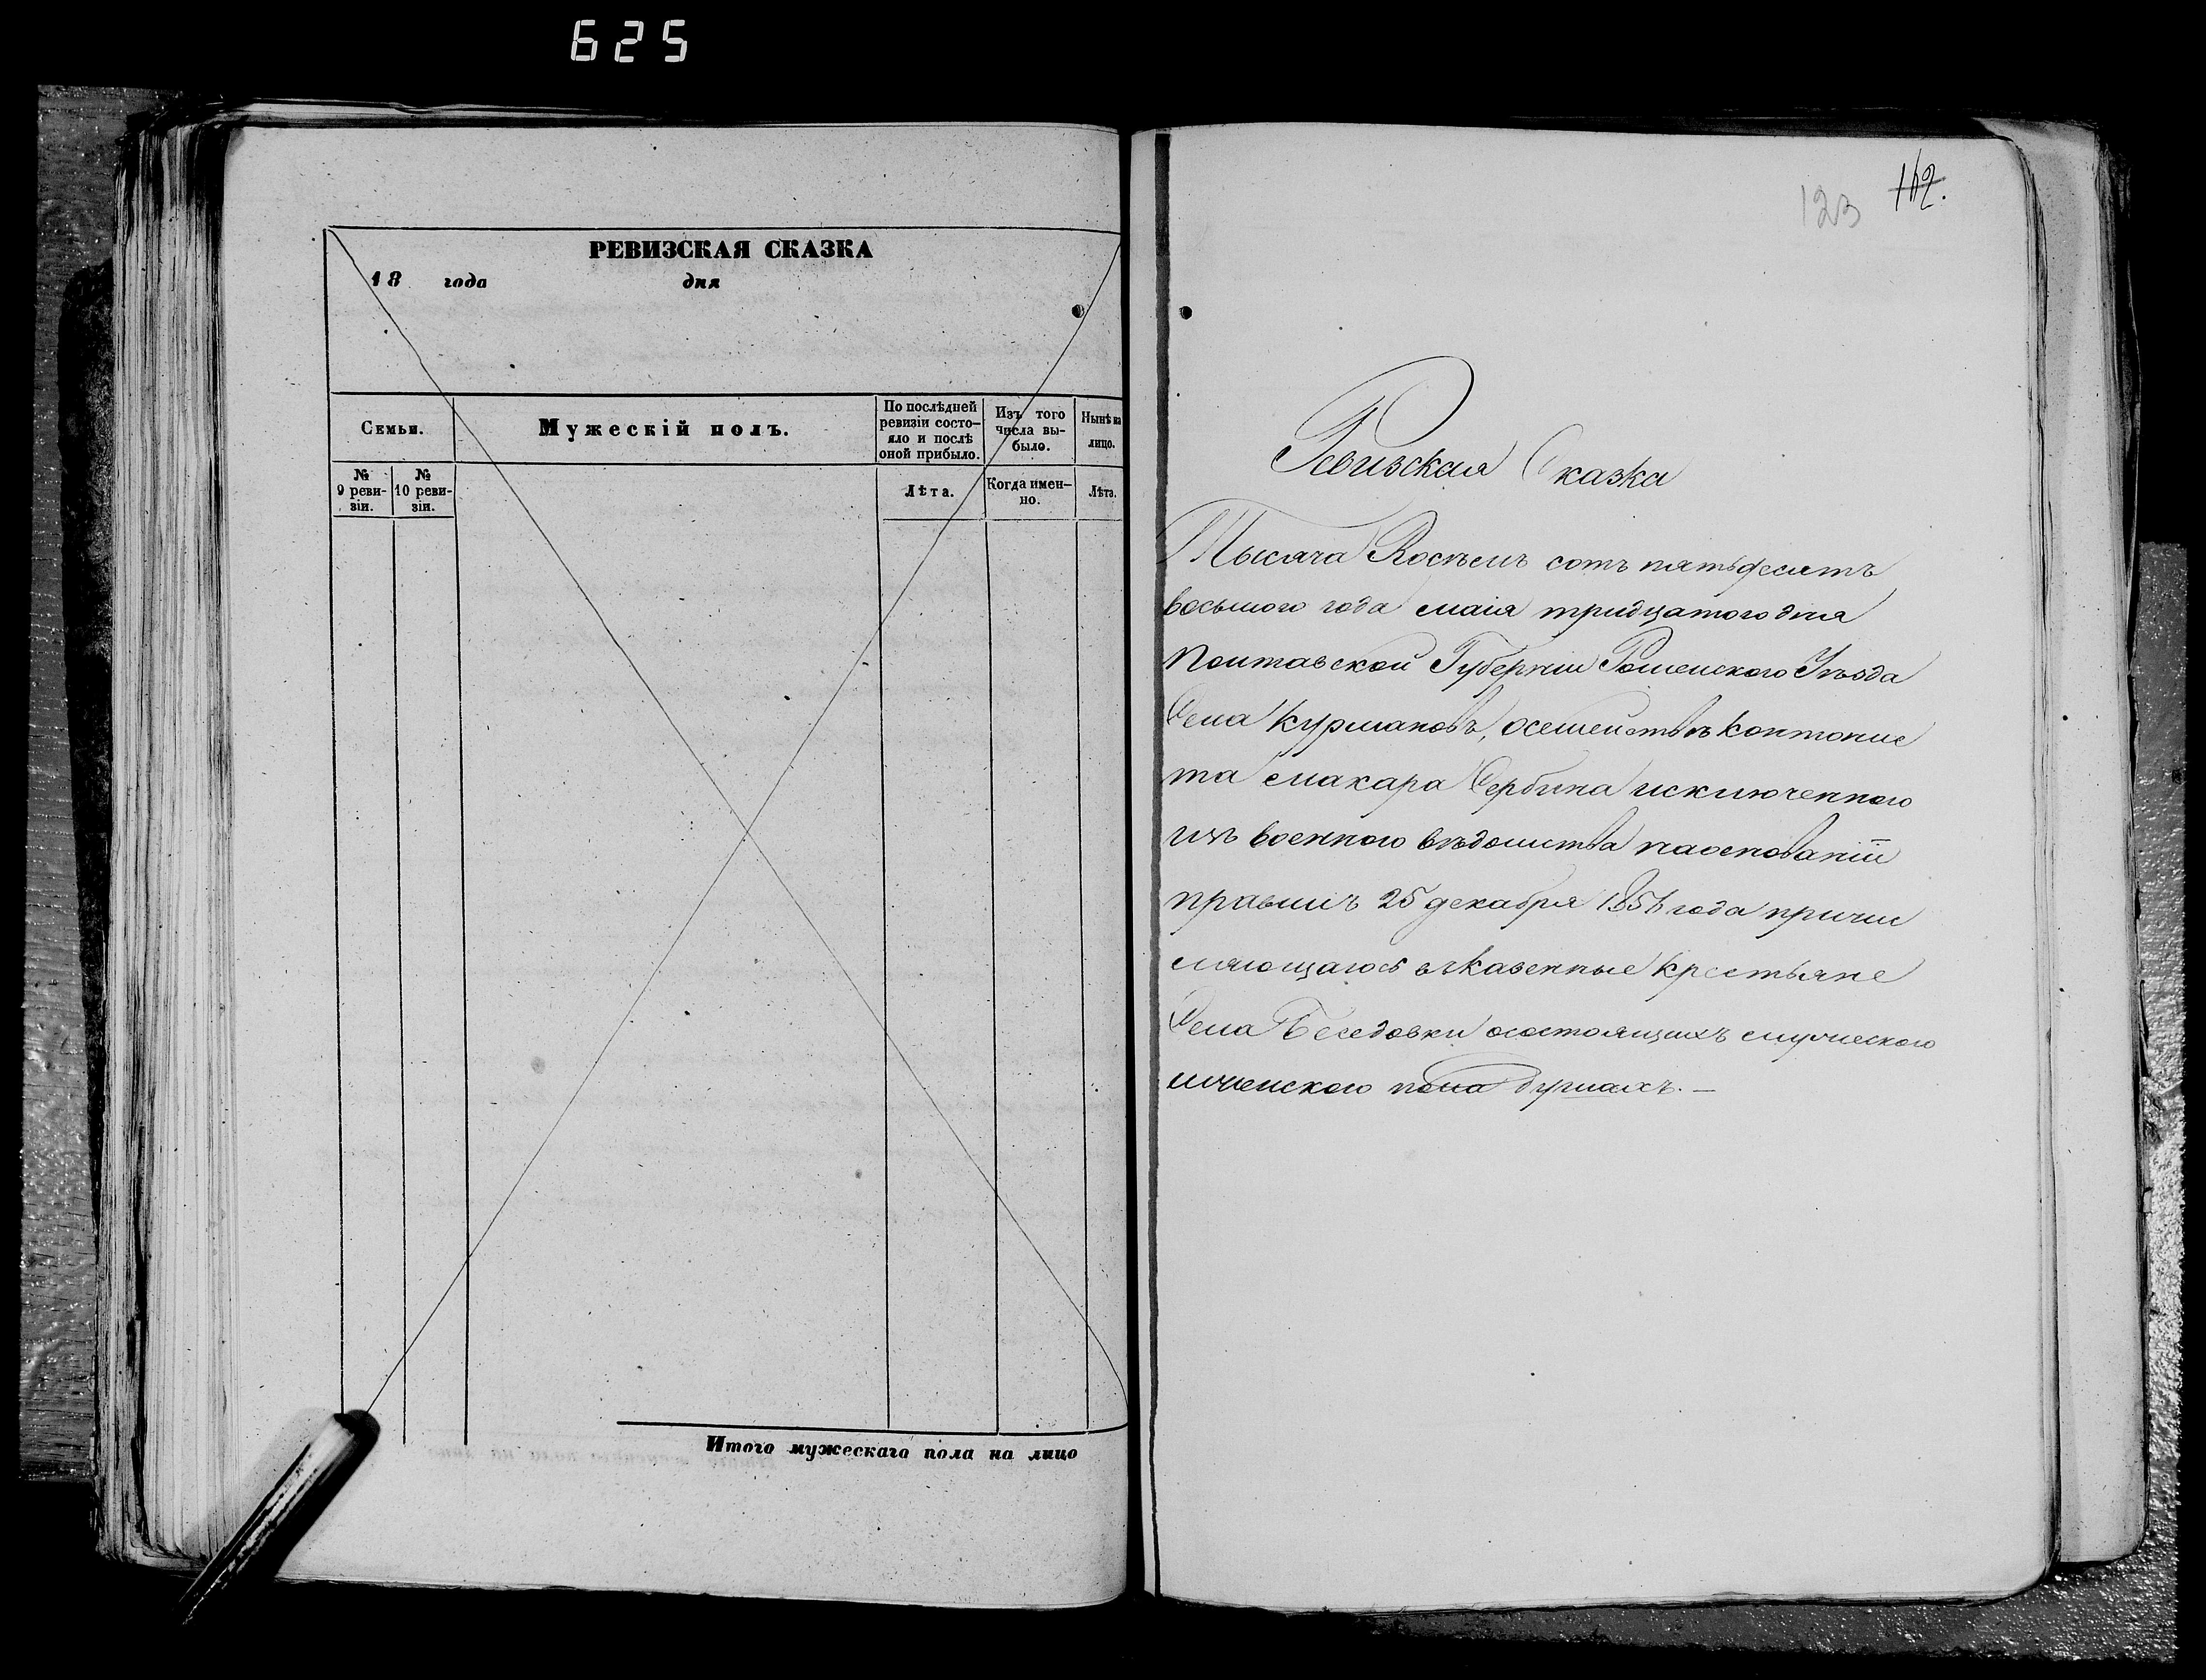 625
РЕВИЗСКАЯ СКАЗКА
18 года дня
Семьи.
Мужескій полъ.
По послѣдней ревизіи состо-
яло и послѣ оной прибыло.
Изъ того числа вы-
было.
Нынѣ на лицо.
№ 9 реви-
зіи.
№ 10 реви-
зіи.
Лѣта.
Когда имен-
но.
Лѣта.
Итого мужескаго пола на лицо
123 112.
Ревизская Сказка
Тысяча Восѣемъ сотъ пятьдесятъ
восьмого года маія тридцатого дня
Полтавской Губерніи Роменского Уѣзда
Села Курмановъ, осемействѣ контонис
та макара Сербина исключенного
изъ военного вѣдомства наоснованіи
правилъ 25 декабря 1856 года причис
ляющагося вказенные крестьяне
Села Беседовки осостоящихъ мужеского
иженского пола душахъ. —